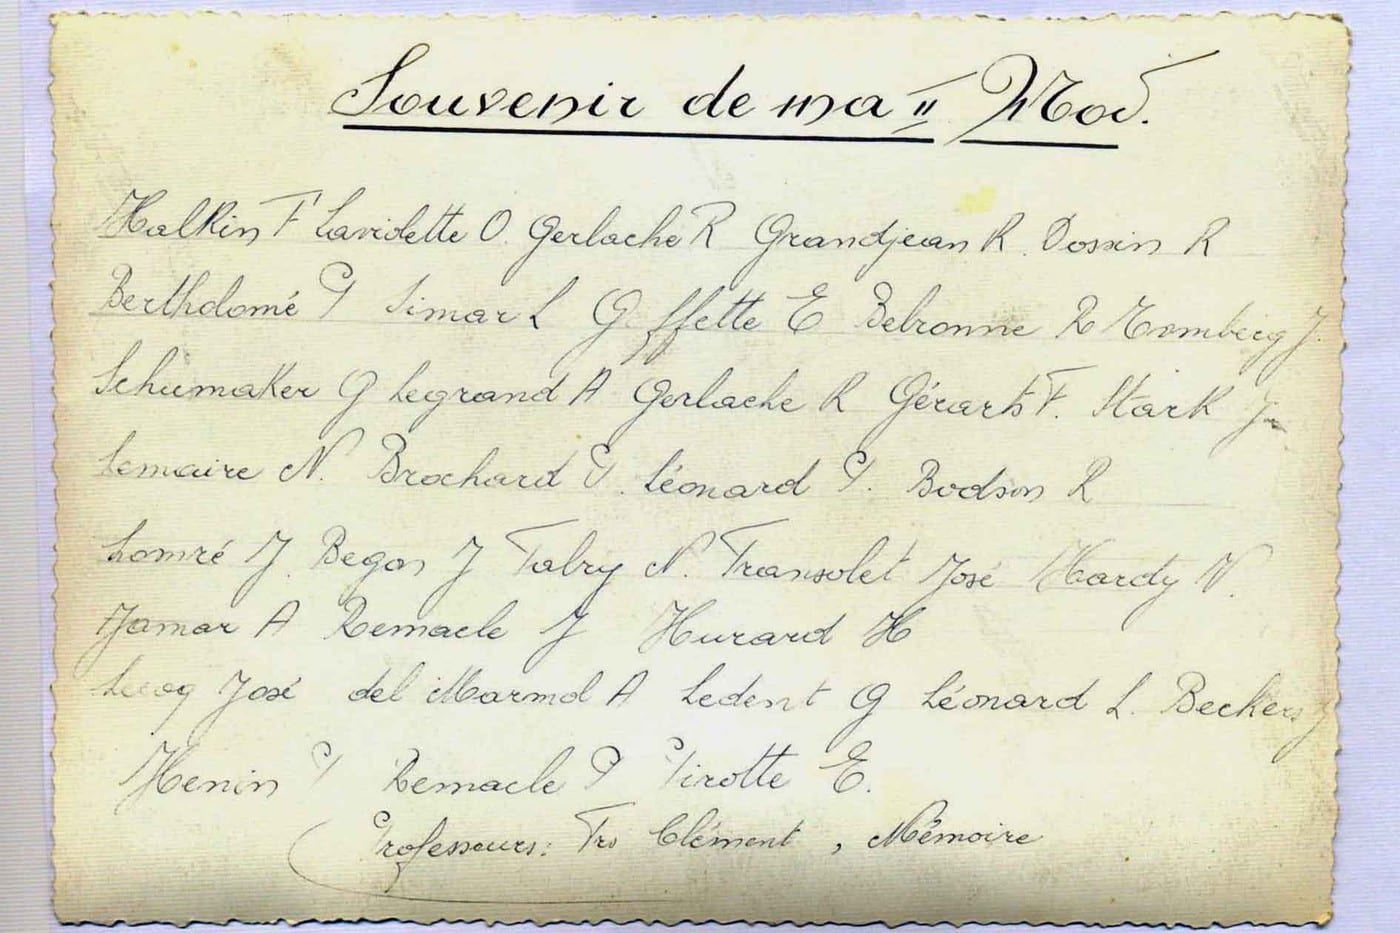 Souvenir de ma II Mod.
Halkin F Laviolette O. Gerlache R Grandjean R. Dossin R
Bertholomé P Simar L Goffette E Belronne R Homberg J.
Schumaker G Legrand A Gerlache R Gérarts F. Stark J
Lemaire N. Brochard P. Léonard P. Bodson R
Lomré J. Begon J Fabry N. Fransolet José Hardy N.
Jamar A Remacle J Hurard H
Lecoq José del Marmol A Ledent G Léonard L. Beckers J
Henin P Remacle P Pirotte E.
Professeurs: Frs Clément, Mémoire